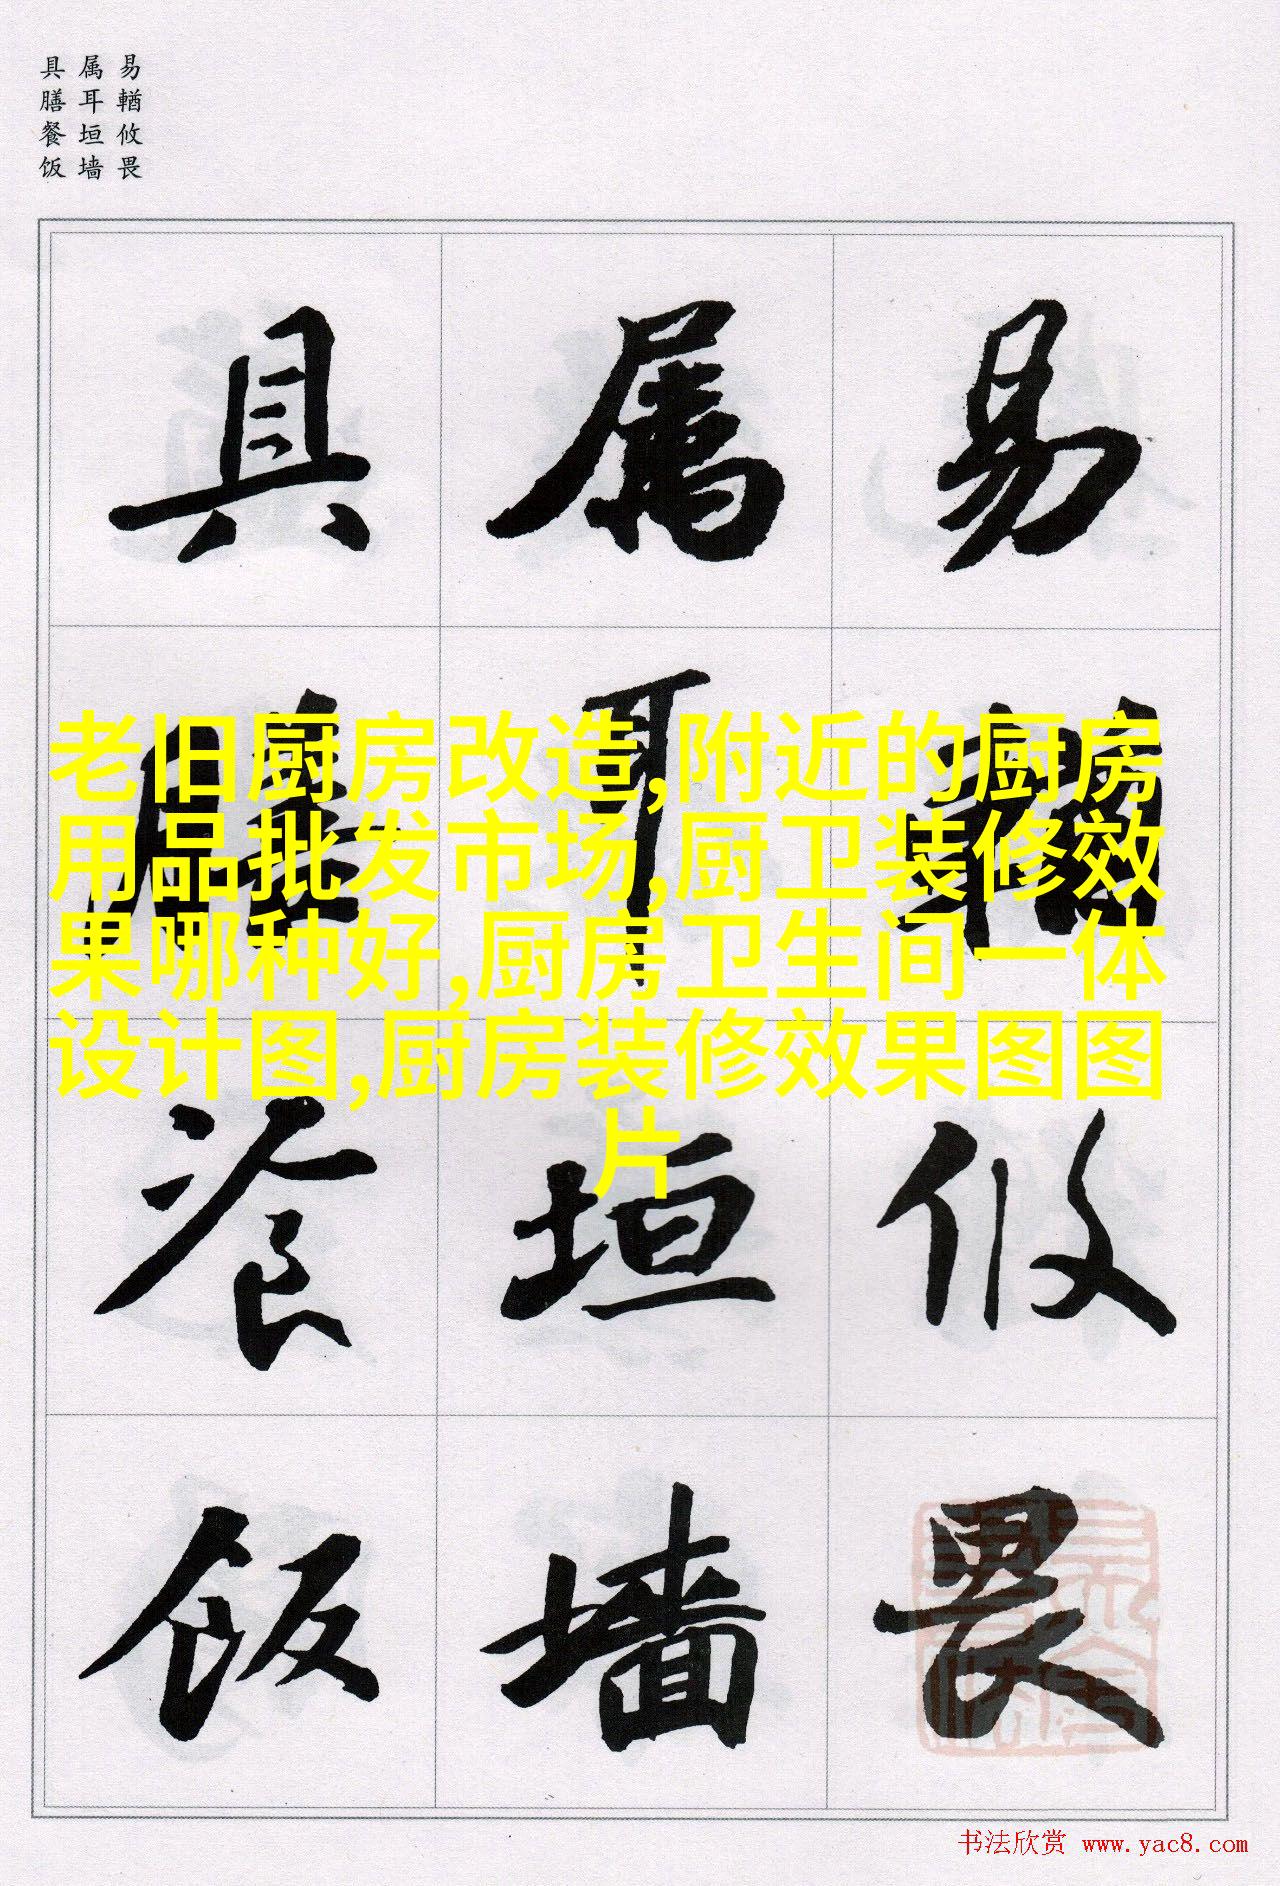 易輶攸畏
属耳垣墙
具膳餐饭
易 輶 攸 畏
属 耳 垣 墙
具 膳 飡 饭
老旧厨房改造,附近的厨房
用品批发市场,厨卫装修效
果哪种好,厨房卫生间一体
设计图,厨房装修效果图图
片
书法欣赏 www.yac8.com